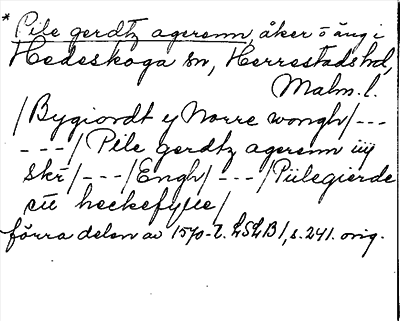 * Pile gerdtz agerenn, åker o äng i
Hedeskoga sn, Herrestads hd,
Malm. l.
/Bygiordt y Norre wongh/ ---
---/Pile gerdtz agerenn iiij
skr/---/Engh/---/Piilegierde
heckefylle/
förra delen av 1570-t. LSLB1, s. 241. orig.